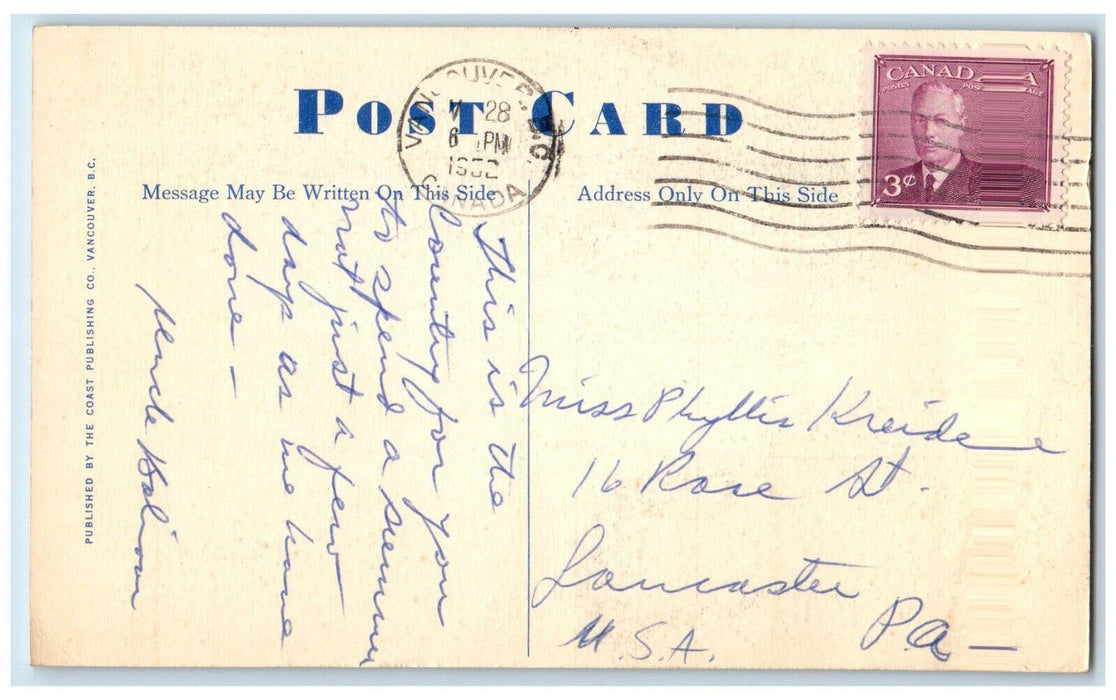 POST CARD
VANCOUVER B.C.
28
6 PM
1952
CANADA
CANADA
POSTES POSTAGE
3¢
Message May Be Written On This Side
Address Only On This Side
PUBLISHED BY THE COAST PUBLISHING CO., VANCOUVER, B.C.
This is the
Country for you
to spend a summer
not just a few
days as we have
done –
Miss Phyllis
16 Rose St.
Lancaster
Pa –
U.S.A.